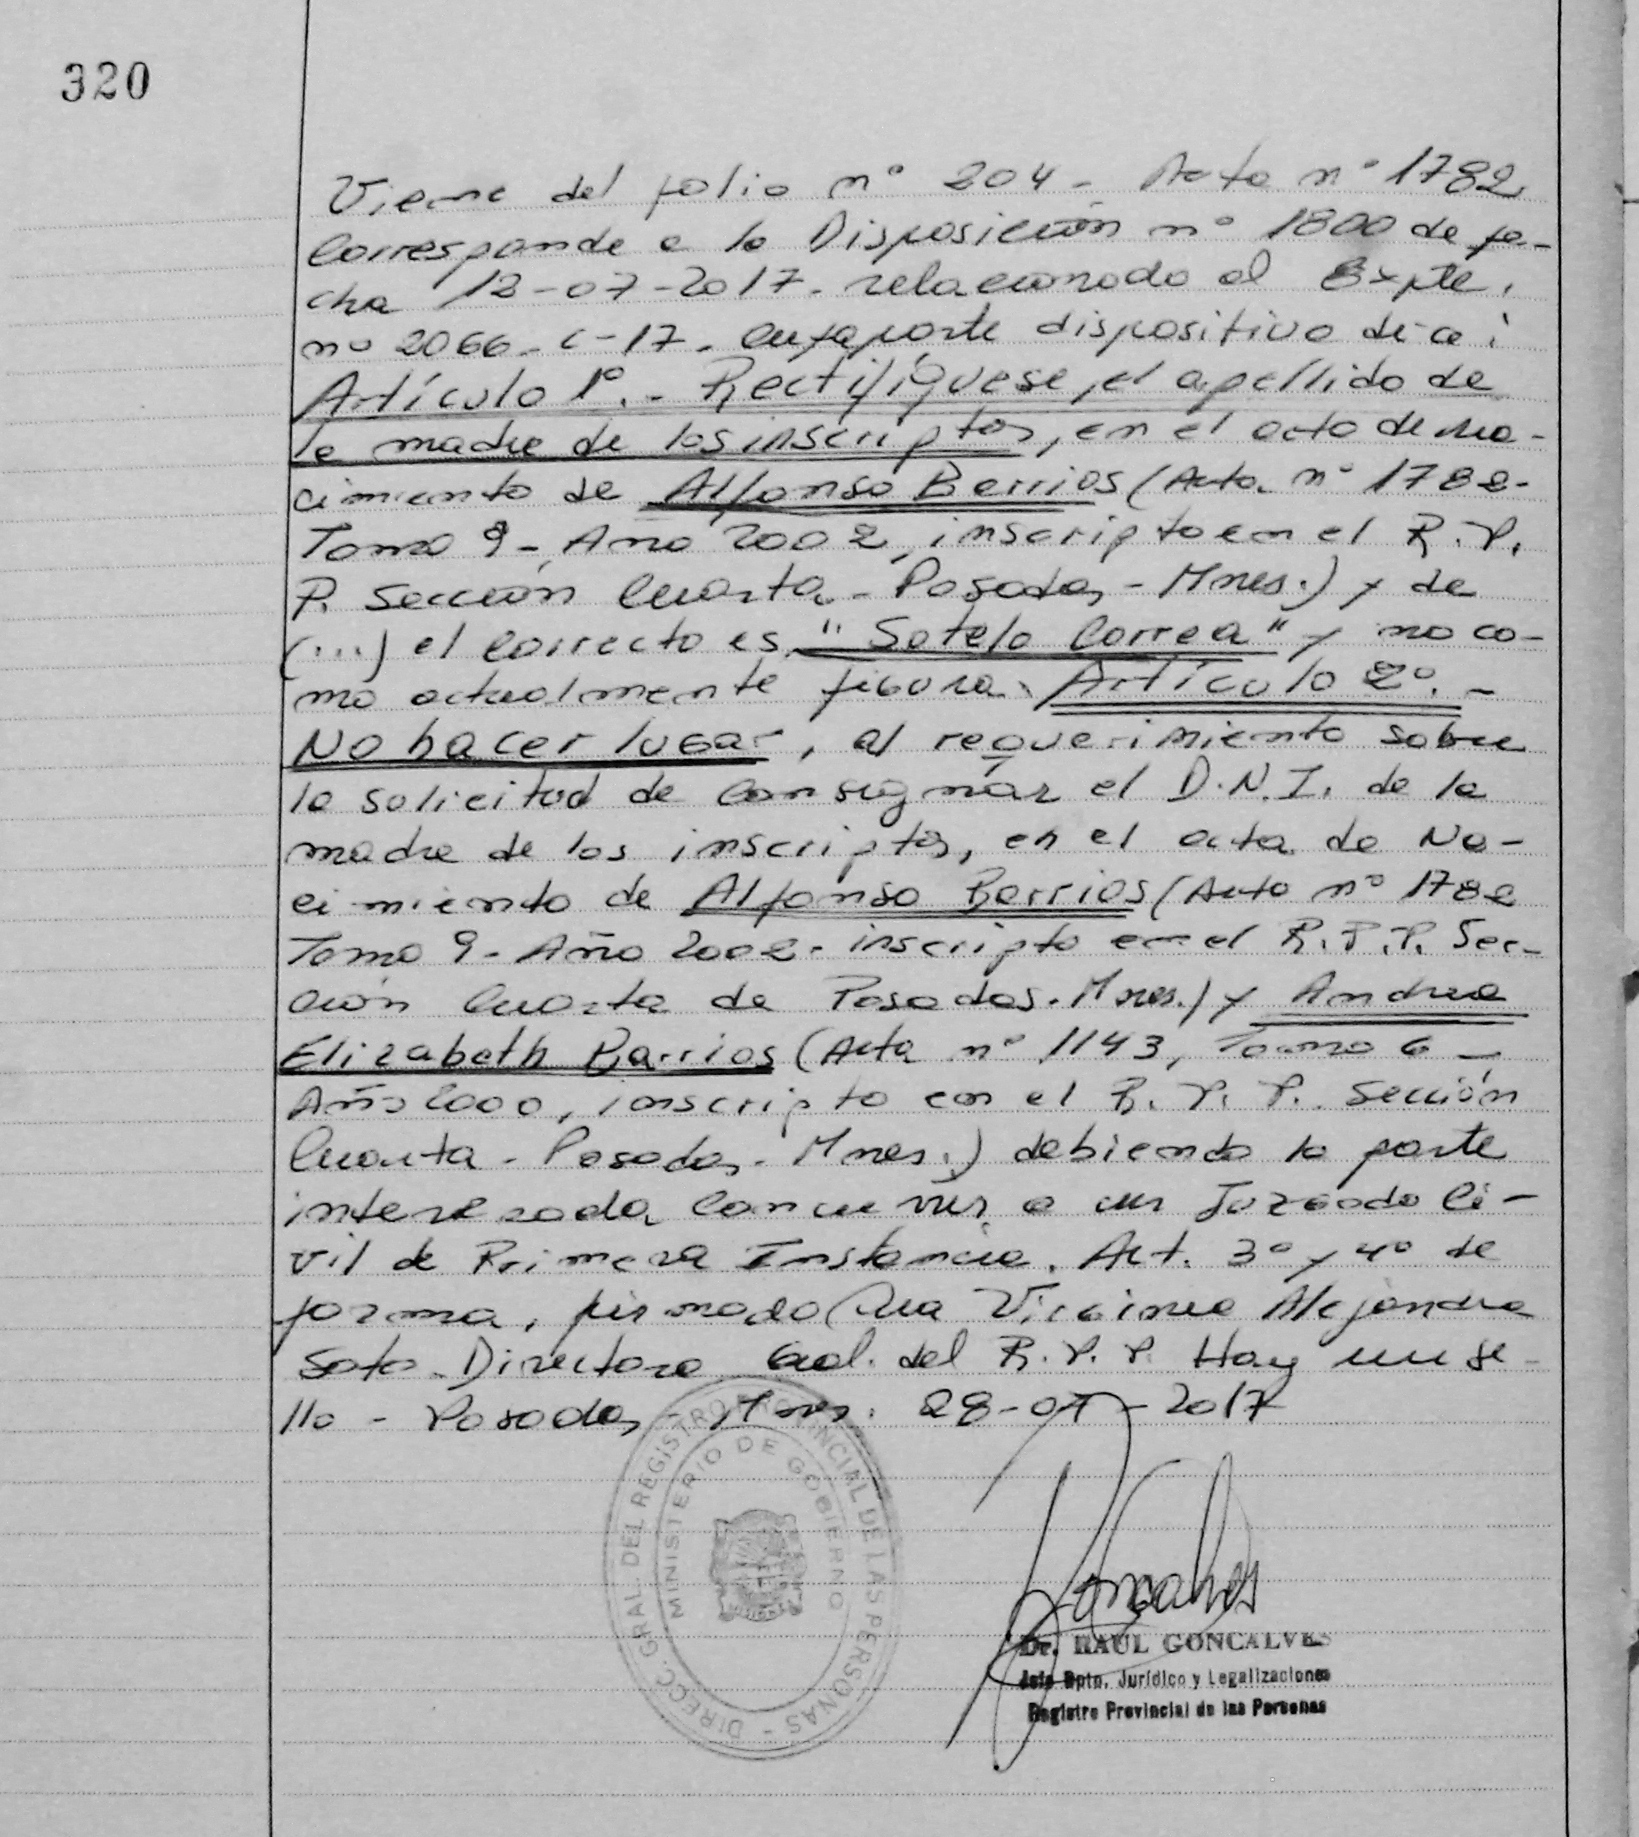 320
Viene del folio nº 204 - Acta nº 1782
Corresponde a la Disposición nº 1800 de fe-
cha 12-07-2017. relacionado al Expte.
nº 2066-C-17. cuya parte dispositiva dice:
Artículo 1º.- Rectifíquese, el apellido de
la madre de los inscriptos, en el acta de na-
cimiento de Alfonso Berrios (Acta nº 1782-
Tomo 9-, Año 2002, inscripto en el R.P.
P. Sección Cuarta - Posadas - Mnes.) y de
(...) el correcto es "Sotelo Correa" y no co-
mo actualmente figura. Artículo 2º.-
No hacer lugar, al requerimiento sobre
la solicitud de consignar el D.N.I. de la
madre de los inscriptos, en el acta de Na-
cimiento de Alfonso Berrios (Acta nº 1782
Tomo 9- Año 2002- inscripto en el R.P.P. Sec-
ción Cuarta de Posadas. Mnes.) y Andrea
Elizabeth Barrios (Acta nº 1143, Tomo 6-
Año 2000, inscripto en el R.P.P. Sección
Cuarta - Posadas. Mnes.) debiendo la parte
interesada concurrir a un Juzgado Ci-
vil de Primera Instancia. Art. 3º y 4º de
forma, firmado Virginia Alejandra
Soto. Directora Gral. del R.P.P. Hay un se-
llo - Posadas - Mnes. 28-07-2017
DIRECC. GRAL. DEL REGISTRO PROVINCIAL DE LAS PERSONAS -
MINISTERIO DE GOBIERNO
Dr. RAUL GONCALVES
Jefe Dpto. Jurídico y Legalizaciones
Registro Provincial de las Personas